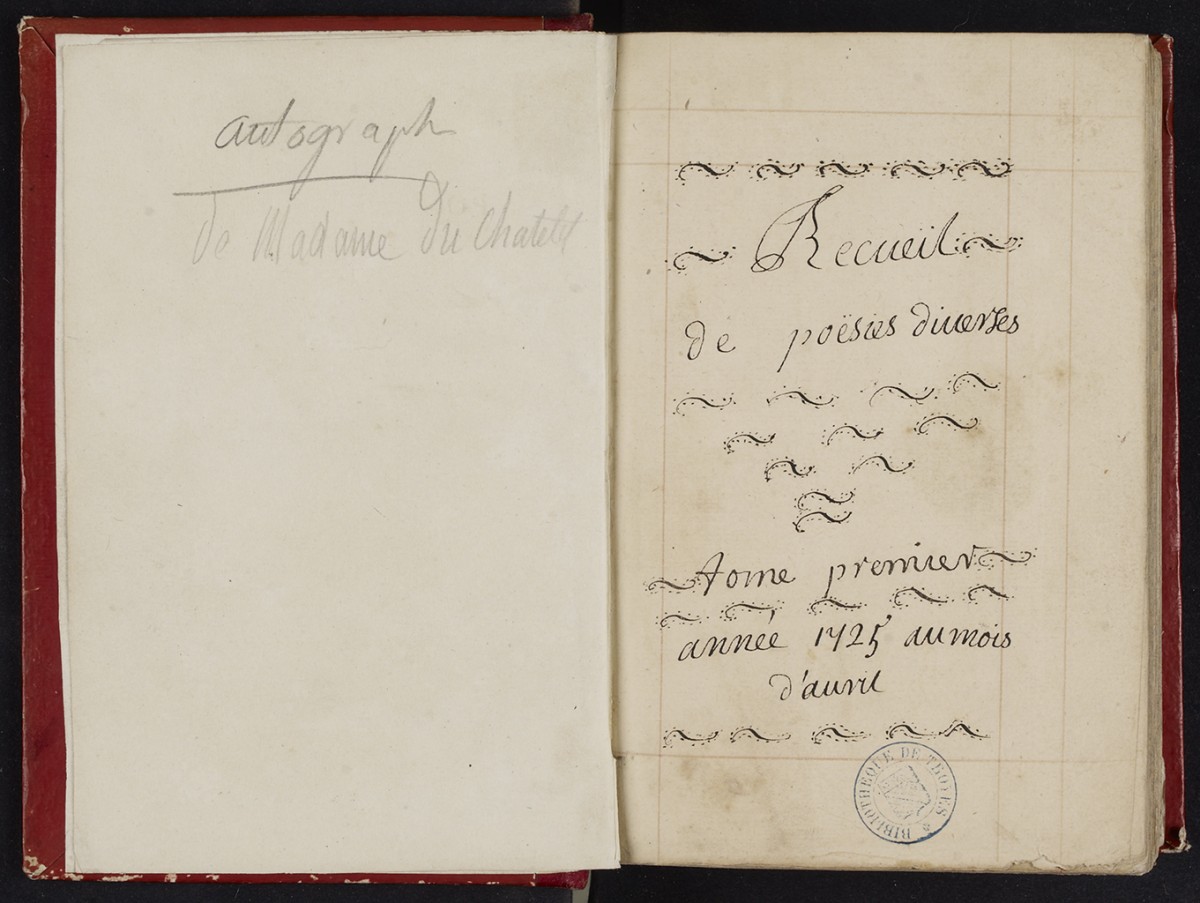 autograph
de Madame du Chatelet
Recueil
de poësies diuerses
tome premier
année 1725 au mois
d'auril
BIBLIOTHEQUE DE TROYES